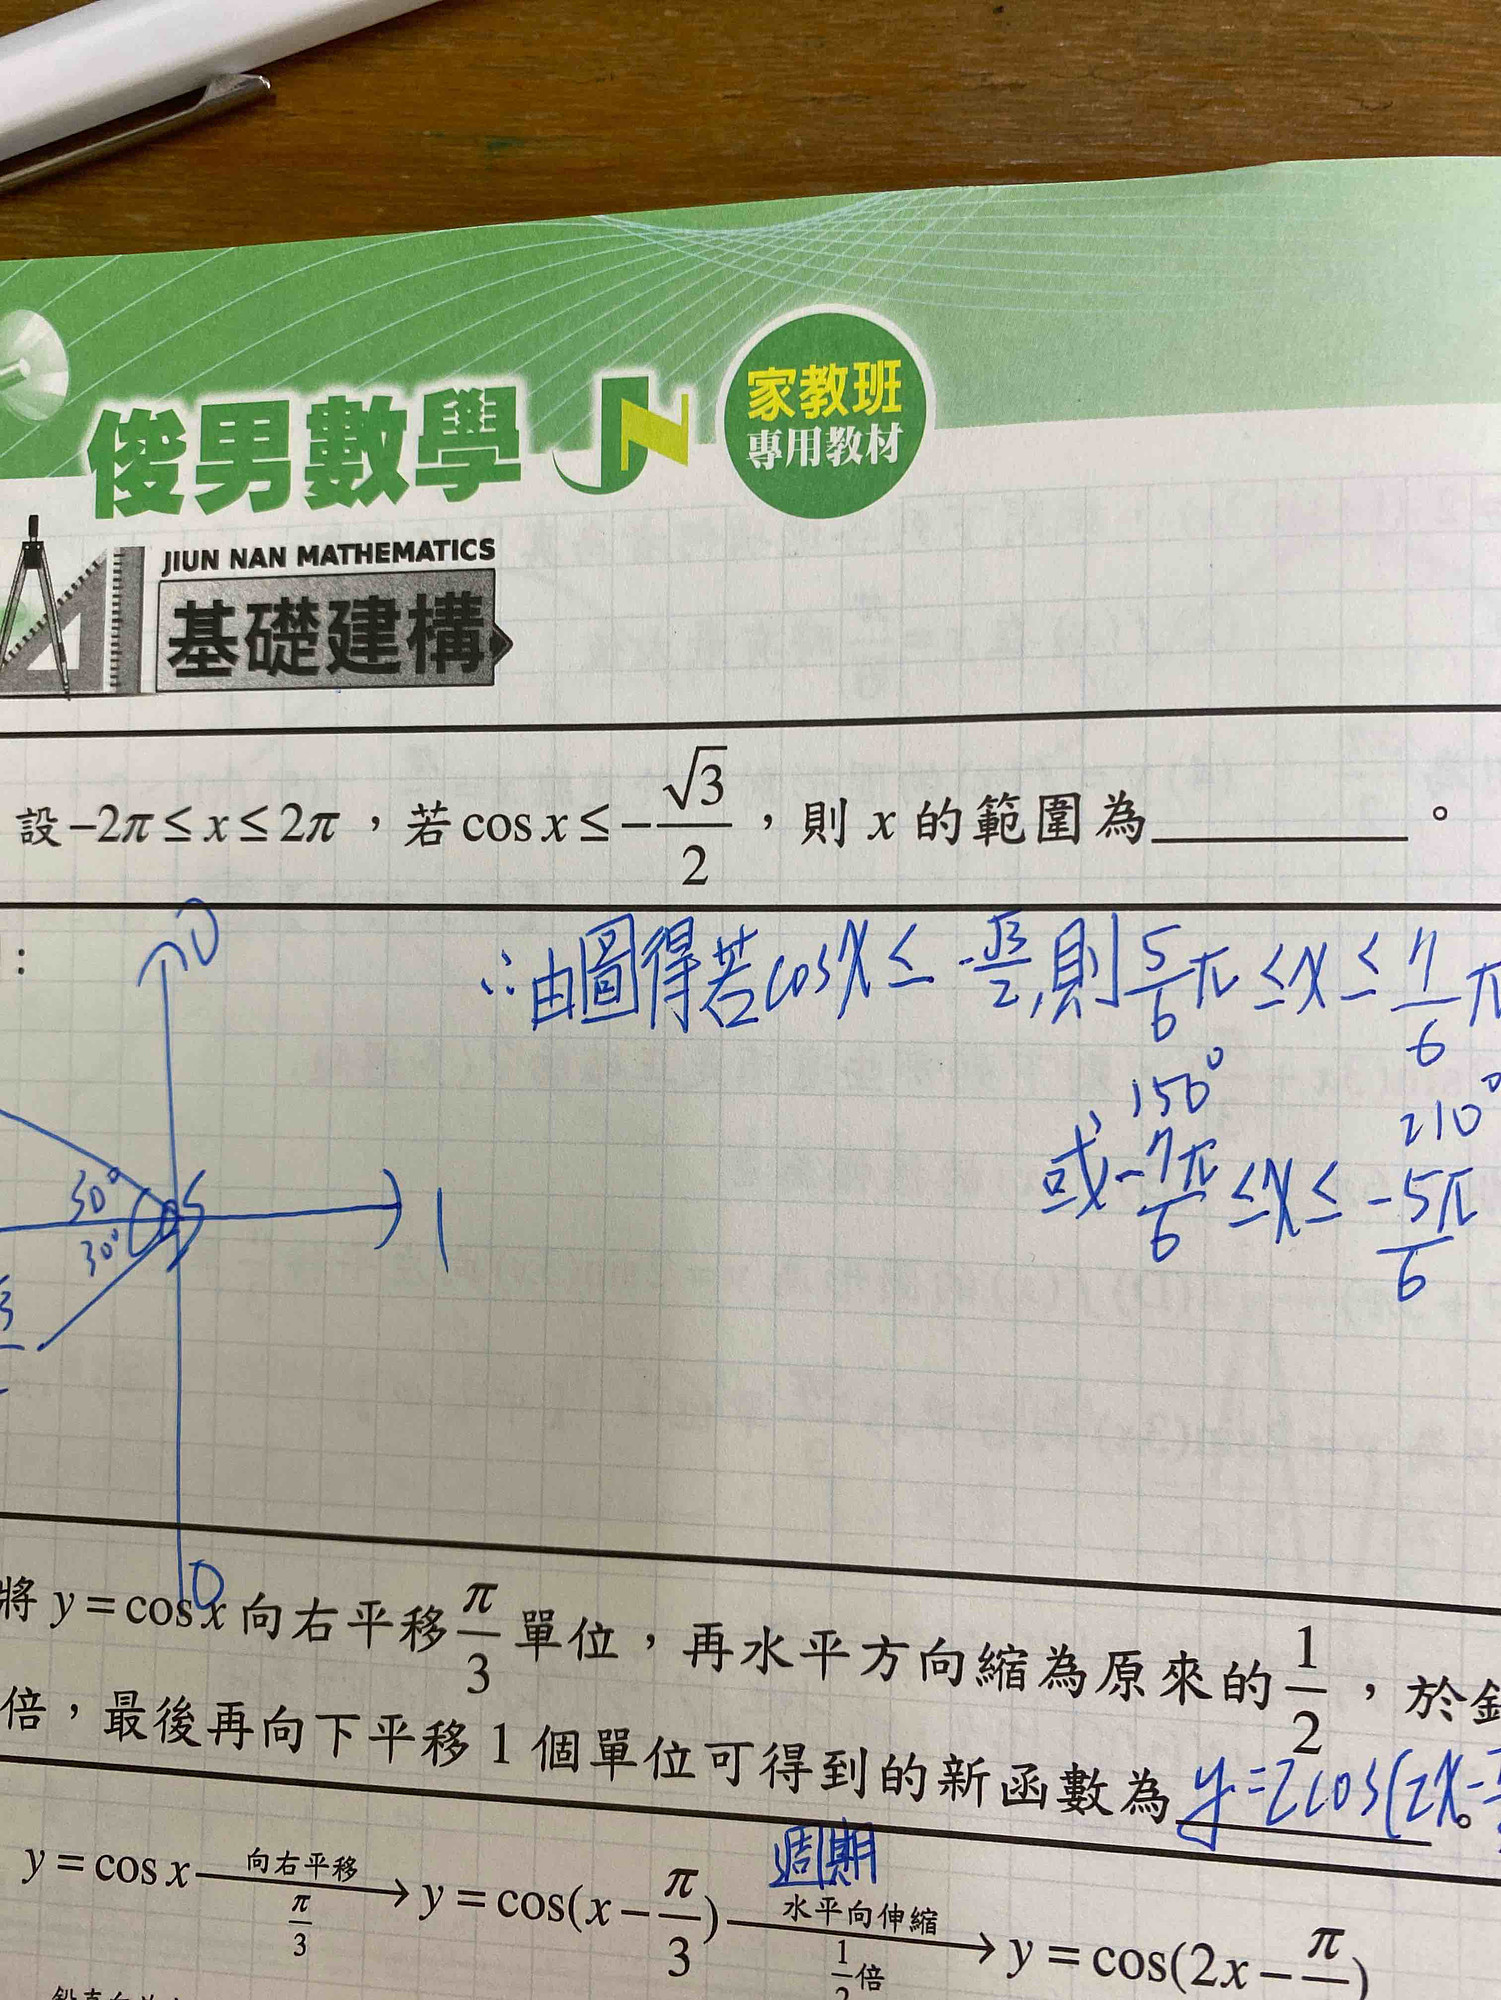 俊男數學
家教班
專用教材
JIUN NAN MATHEMATICS
基礎建構
設 -2π ≤ x ≤ 2π,若 cos x ≤ -√3/2,則 x 的範圍為________。
:
0
∴由圖得若cosx ≤ -√3/2,則 5/6 π ≤ x ≤ 7/6 π
150° 210°
或 -7π/6 ≤ x ≤ -5π/6
30°
30°
1
0
將 y = cos x 向右平移 π/3 單位,再水平方向縮為原來的 1/2,於鉛
倍,最後再向下平移 1 個單位可得到的新函數為 y=2cos(2x- 。
週期
y = cos x 向右平移 π/3 → y = cos(x - π/3) 水平向伸縮 1/2倍 → y = cos(2x - π